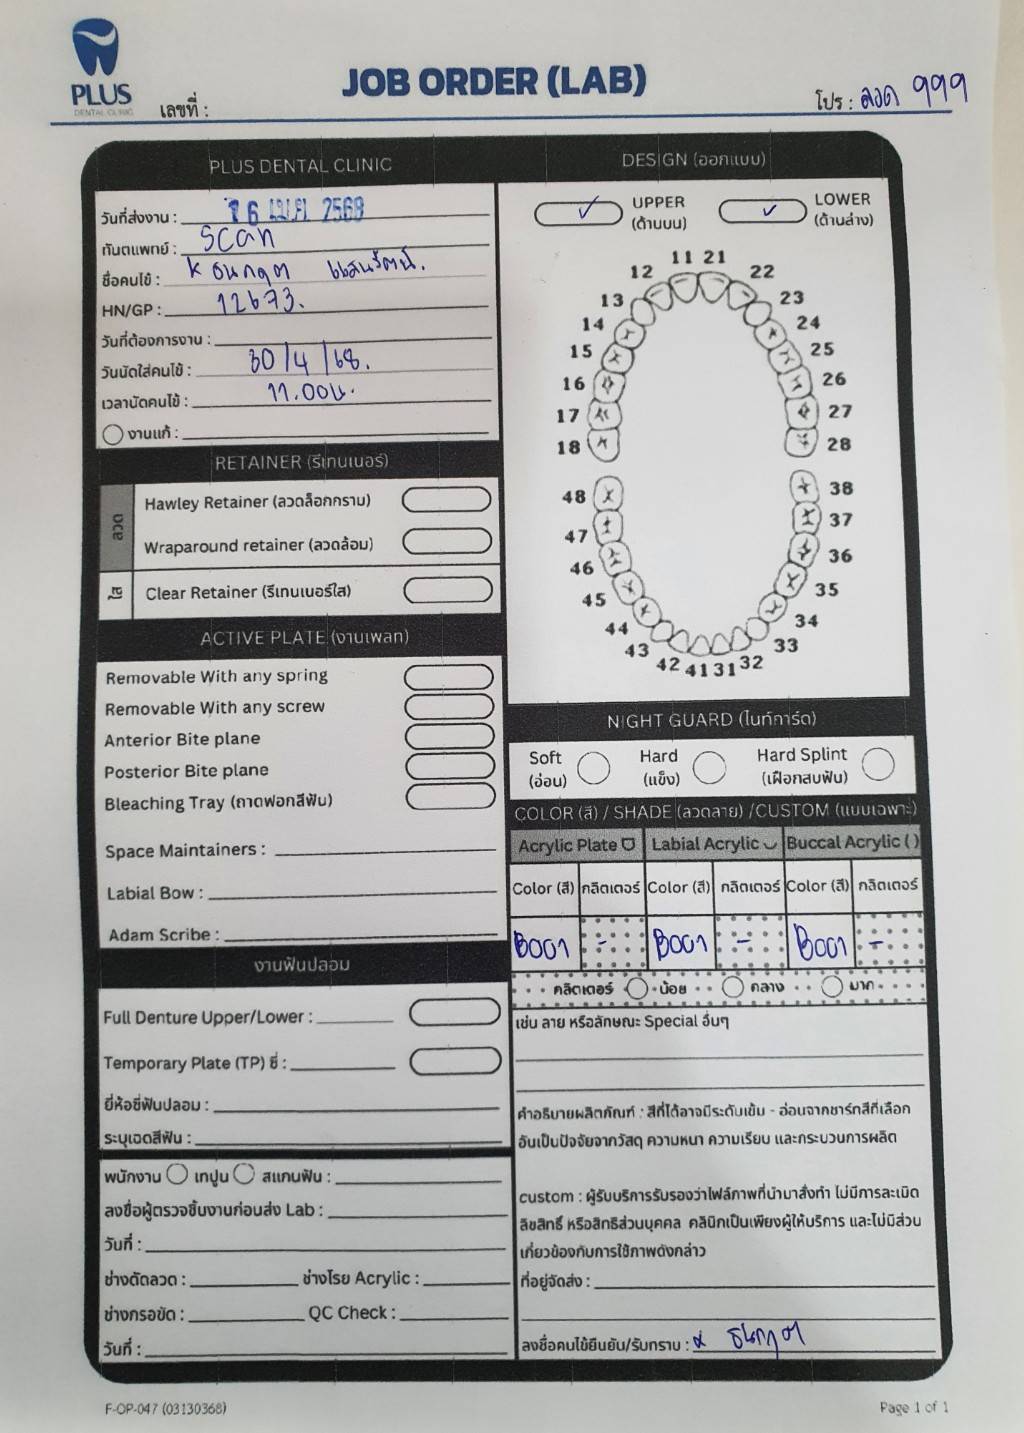 PLUS
DENTAL CLINIC
JOB ORDER (LAB)
เลขที่ :
โปร : ลวด 999
PLUS DENTAL CLINIC
วันที่ส่งงาน : 16 เม.ย. 2568
ทันตแพทย์ : Scan
ชื่อคนไข้ : K ธนกฤต แสนรัตน์.
HN/GP : 12673.
วันที่ต้องการงาน :
วันนัดใส่คนไข้ : 30/4/68.
เวลานัดคนไข้ : 11.00น.
งานแก้ :
RETAINER (รีเทนเนอร์)
ลวด
Hawley Retainer (ลวดล็อกกราม)
Wraparound retainer (ลวดล้อม)
ใส
Clear Retainer (รีเทนเนอร์ใส)
ACTIVE PLATE (งานเพลท)
Removable With any spring
Removable With any screw
Anterior Bite plane
Posterior Bite plane
Bleaching Tray (ถาดฟอกสีฟัน)
Space Maintainers :
Labial Bow :
Adam Scribe :
งานฟันปลอม
Full Denture Upper/Lower :
Temporary Plate (TP) ซี่ :
ยี่ห้อซี่ฟันปลอม :
ระบุเฉดสีฟัน :
พนักงาน เทปูน สแกนฟัน :
ลงชื่อผู้ตรวจชิ้นงานก่อนส่ง Lab :
วันที่ :
ช่างดัดลวด : ช่างโรย Acrylic :
ช่างกรอขัด : QC Check :
วันที่ :
DESIGN (ออกแบบ)
✓ UPPER (ด้านบน)
✓ LOWER (ด้านล่าง)
11 21
12 22
13 23
14 24
15 25
16 26
17 27
18 28
48 38
47 37
46 36
45 35
44 34
43 33
42 41 31 32
NIGHT GUARD (ไนท์การ์ด)
Soft (อ่อน)
Hard (แข็ง)
Hard Splint (เฝือกสบฟัน)
COLOR (สี) / SHADE (ลวดลาย) /CUSTOM (แบบเฉพาะ)
Acrylic Plate Labial Acrylic Buccal Acrylic ( )
Color (สี) กลิตเตอร์ Color (สี) กลิตเตอร์ Color (สี) กลิตเตอร์
B001 - B001 - B001 -
กลิตเตอร์ น้อย กลาง มาก
เช่น ลาย หรือลักษณะ Special อื่นๆ
คำอธิบายผลิตภัณฑ์ : สีที่ได้อาจมีระดับเข้ม - อ่อนจากชาร์ทสีที่เลือก
อันเป็นปัจจัยจากวัสดุ ความหนา ความเรียบ และกระบวนการผลิต
custom : ผู้รับบริการรับรองว่าไฟล์ภาพที่นำมาสั่งทำ ไม่มีการละเมิด
ลิขสิทธิ์ หรือสิทธิส่วนบุคคล คลินิกเป็นเพียงผู้ให้บริการ และไม่มีส่วน
เกี่ยวข้องกับการใช้ภาพดังกล่าว
ที่อยู่จัดส่ง :
ลงชื่อคนไข้ยืนยัน/รับทราบ : x ธนกฤต
F-OP-047 (03130368)
Page 1 of 1